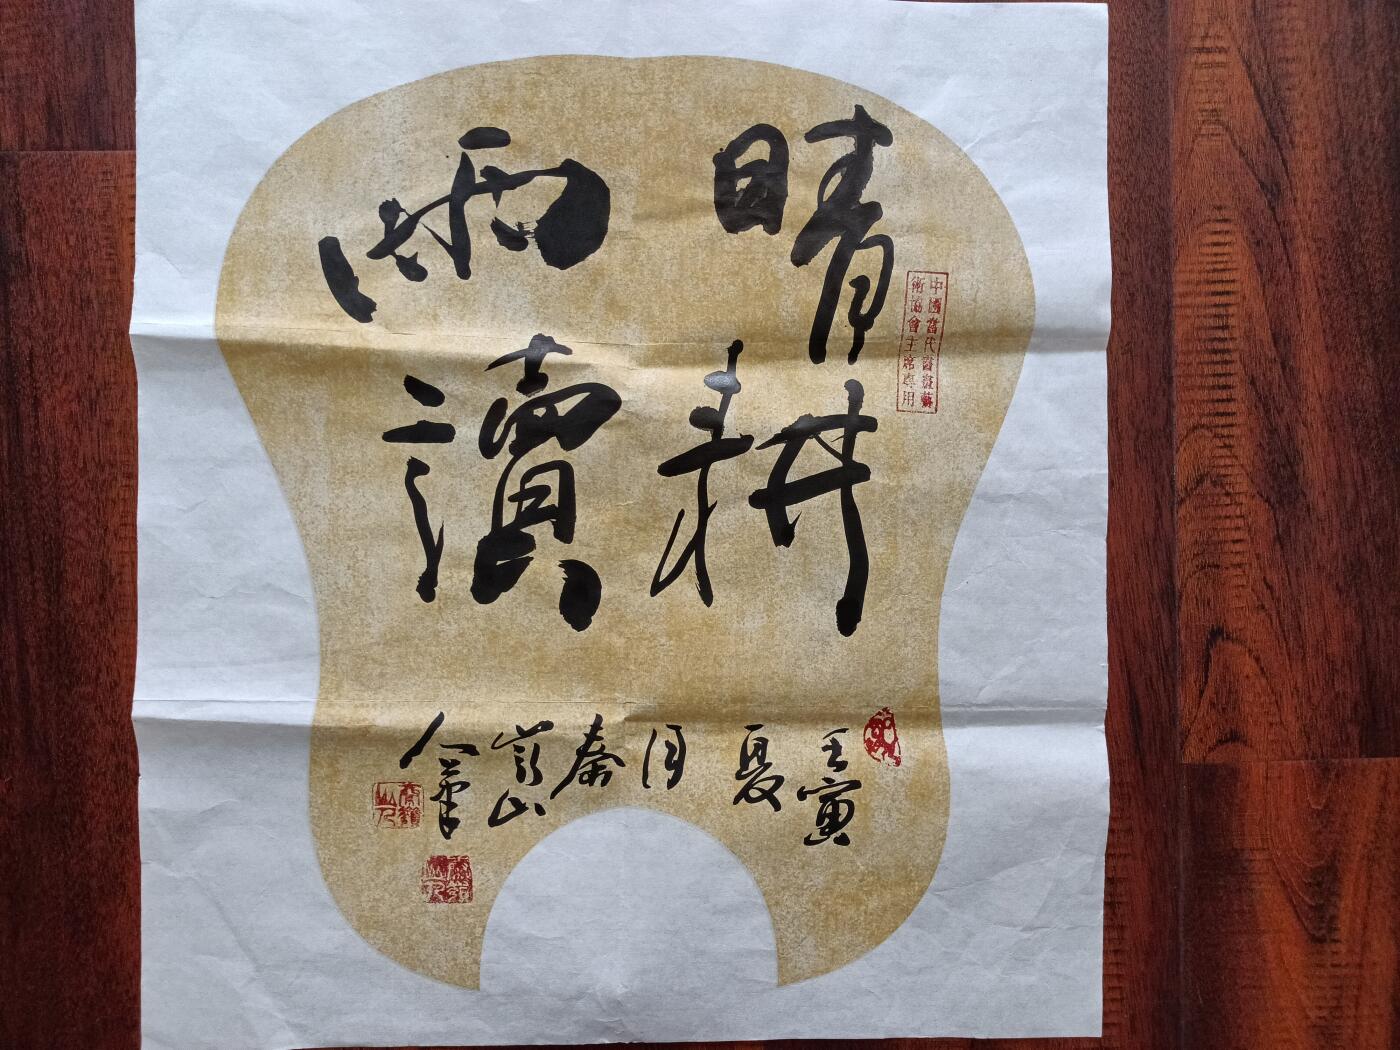 晴耕
雨讀
中國當代書畫藝
術協會主席專用
壬寅
夏
月
秦
嶺山
人筆